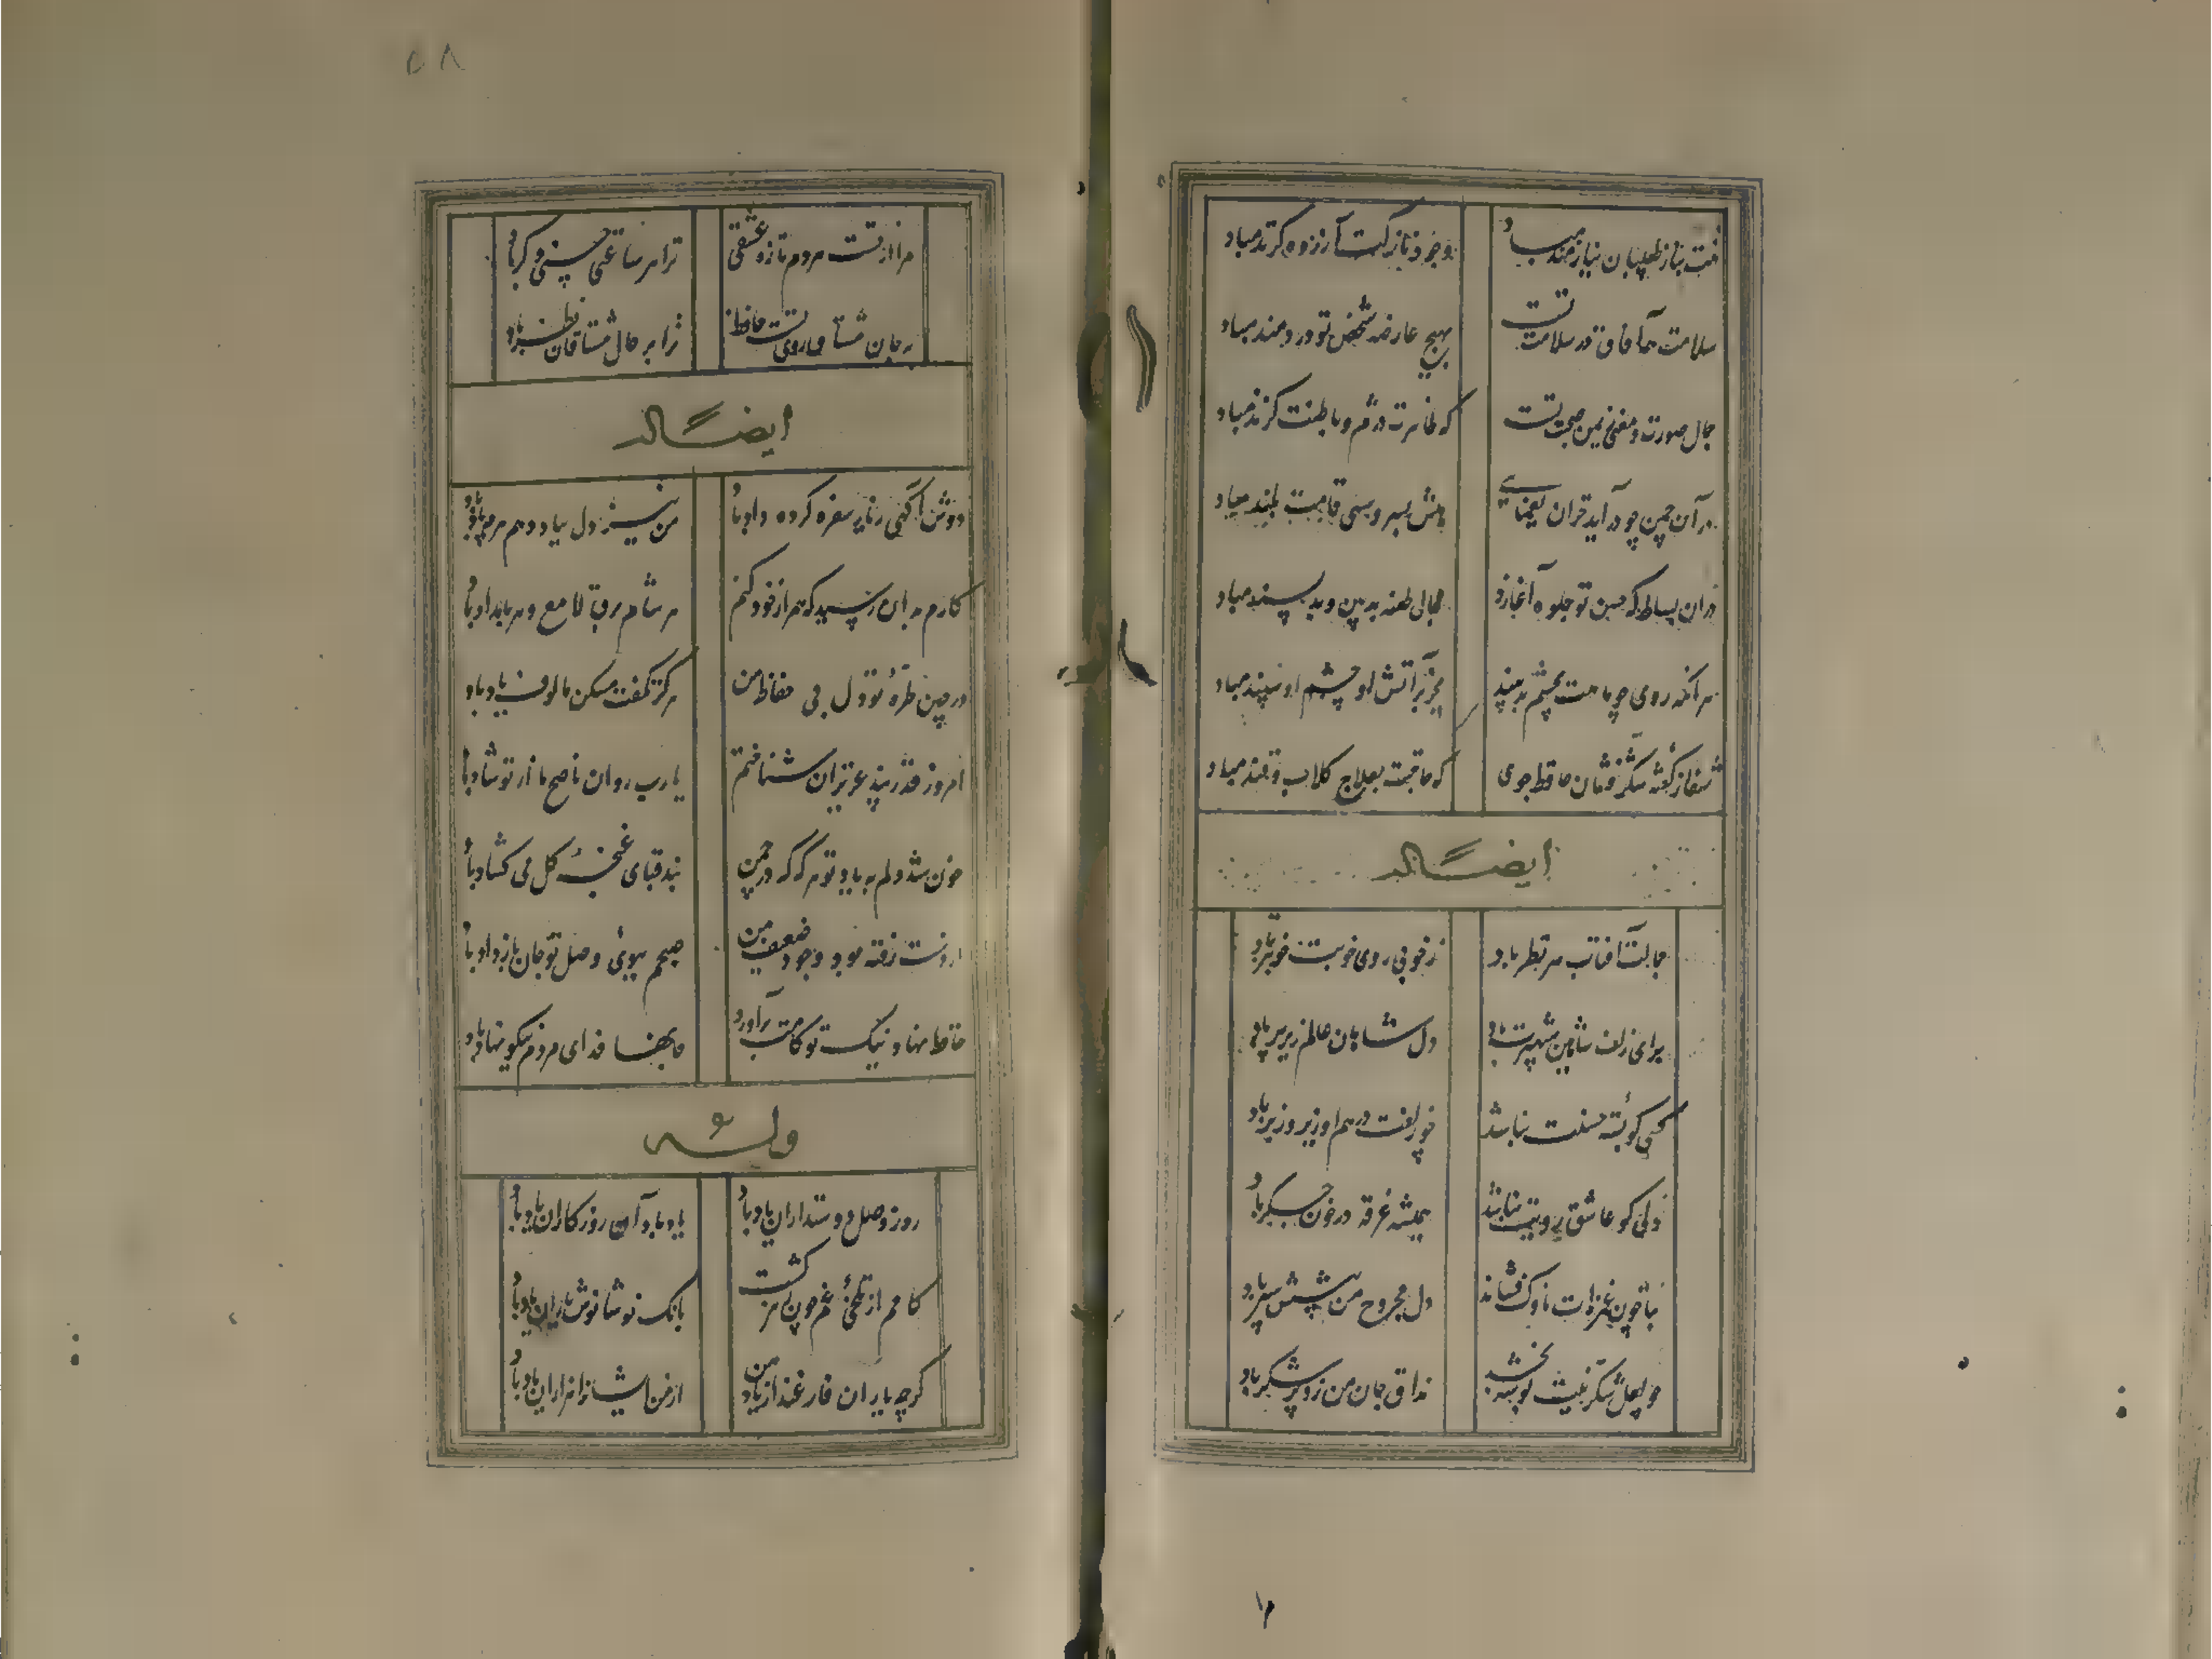 تنت بناز طبیبان نیازمند مباد وجود نازکت آزرده گزند مباد
سلامت همه آفاق در سلامت تست بهیچ عارضه شخص تو دردمند مباد
جمال صورت و معنی ز یمن صحت تست که ظاهرت دژم و باطنت نژند مباد
در آن چمن چو درآید خزان یغمایی رهش بسرو سهی قامت بلند مباد
در آن بساط که حسن تو جلوه آغازد مجال طعنه بدبین و بدپسند مباد
هر آنکه روی چو ماهت بچشم بد بیند بجز بر آتش او چشم او سپند مباد
شفا ز گفته شکرفشان حافظ جوی که حاجتت بعلاج گلاب و قند مباد
ایضاً له
جمالت آفتاب هر نظر باد ز خوبی روی خوبت خوبتر باد
همای زلف شاهین شهپرت باد دل شاهان عالم زیر پر باد
کسی کو بسته حسنت نباشد چو زلفت درهم او زیر و زبر باد
دلی کو عاشق رویت نباشد همیشه غرقه در خون جگر باد
بتا چون غمزه‌ات ناوک فشاند دل مجروح من پیشش سپر باد
چو لعل شکرینت بوسه بخشد مذاق جان من زو پر شکر باد
۵۸
مرا از تست هر دم تازه عشقی ترا هر ساعتی حسنی دگر باد
به جان مشتاق روی تست حافظ ترا بر حال مشتاقان نظر باد
ایضاً له
دوش آگهی ز یار سفر کرده داد باد من نیز دل بباد دهم هرچه باد باد
کارم بدان رسید که همراز خود کنم هر شام برق لامع و هر بامداد باد
در چین طره تو دل بی حفاظ من هرگز نگفت مسکن مالوف یاد باد
امروز قدر پند عزیزان شناختم یارب روان ناصح ما از تو شاد باد
خون شد دلم به یاد تو هر گه که در چمن بند قبای غنچه گل می گشاد باد
از دست رفته بود وجود ضعیف من صبحم ببوی وصل تو جان باز داد باد
حافظ نهاد نیک تو کامت برآورد جانها فدای مردم نیکو نهاد باد
وله
روز وصل دوستداران یاد باد یاد باد آن روزگاران یاد باد
کامم از تلخی غم چون زهر گشت بانک نوشانوش یاران یاد باد
گرچه یاران فارغند از یاد من از من ایشانرا هزاران یاد باد